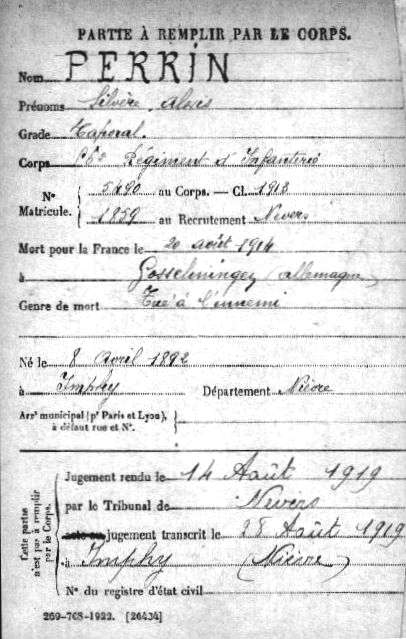 PARTIE À REMPLIR PAR LE CORPS.
Nom PERRIN
Prénoms Silvère Aloïs
Grade Caporal.
Corps Régiment d'Infanterie
N° Matricule. { 5490 au Corps. — Cl. 1913
1859 au Recrutement Nevers
Mort pour la France le 20 août 1914
à Gosselmingen (Allemagne)
Genre de mort Tué à l'ennemi
Né le 8 Avril 1892
à Imphy Département Nièvre
Arrt municipal (pr Paris et Lyon), à défaut rue et N°. {
Cette partie n'est pas à remplir par le Corps.
Jugement rendu le 14 Août 1919
par le Tribunal de Nevers
acte ou jugement transcrit le 28 Août 1919
à Imphy (Nièvre)
N° du registre d'état civil
269-708-1922. [26434]